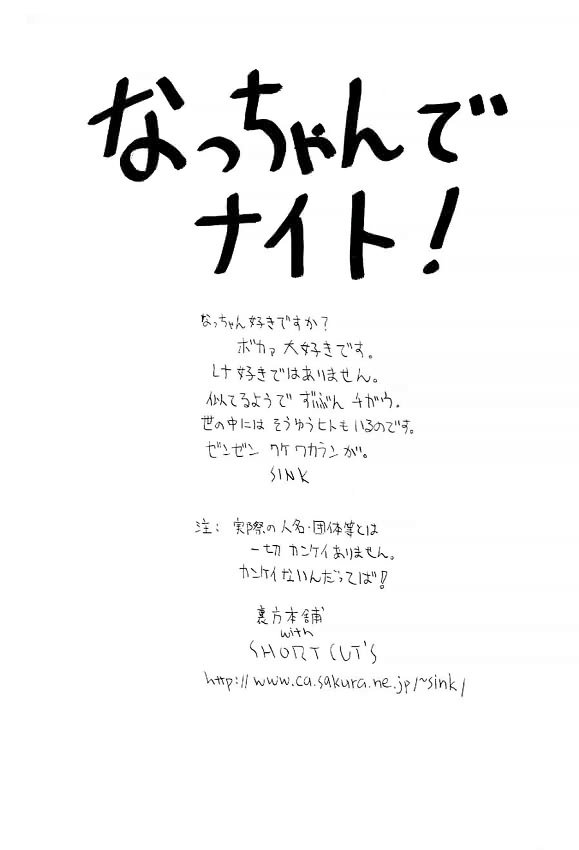 なっちゃんで
ナイト!
なっちゃん好きですか?
ボカァ 大好きです。
Lナ好きではありません。
似てるようで ずいぶん チガウ。
世の中には そうゆうヒトもいるのです。
ゼンゼン ワケ ワカランが。
SINK
注: 実際の人名・団体等とは
一切 カンケイありません。
カンケイないんだってば!
裏方本舗
with
SHORT CUT'S
http://www.ca.sakura.ne.jp/~sink/